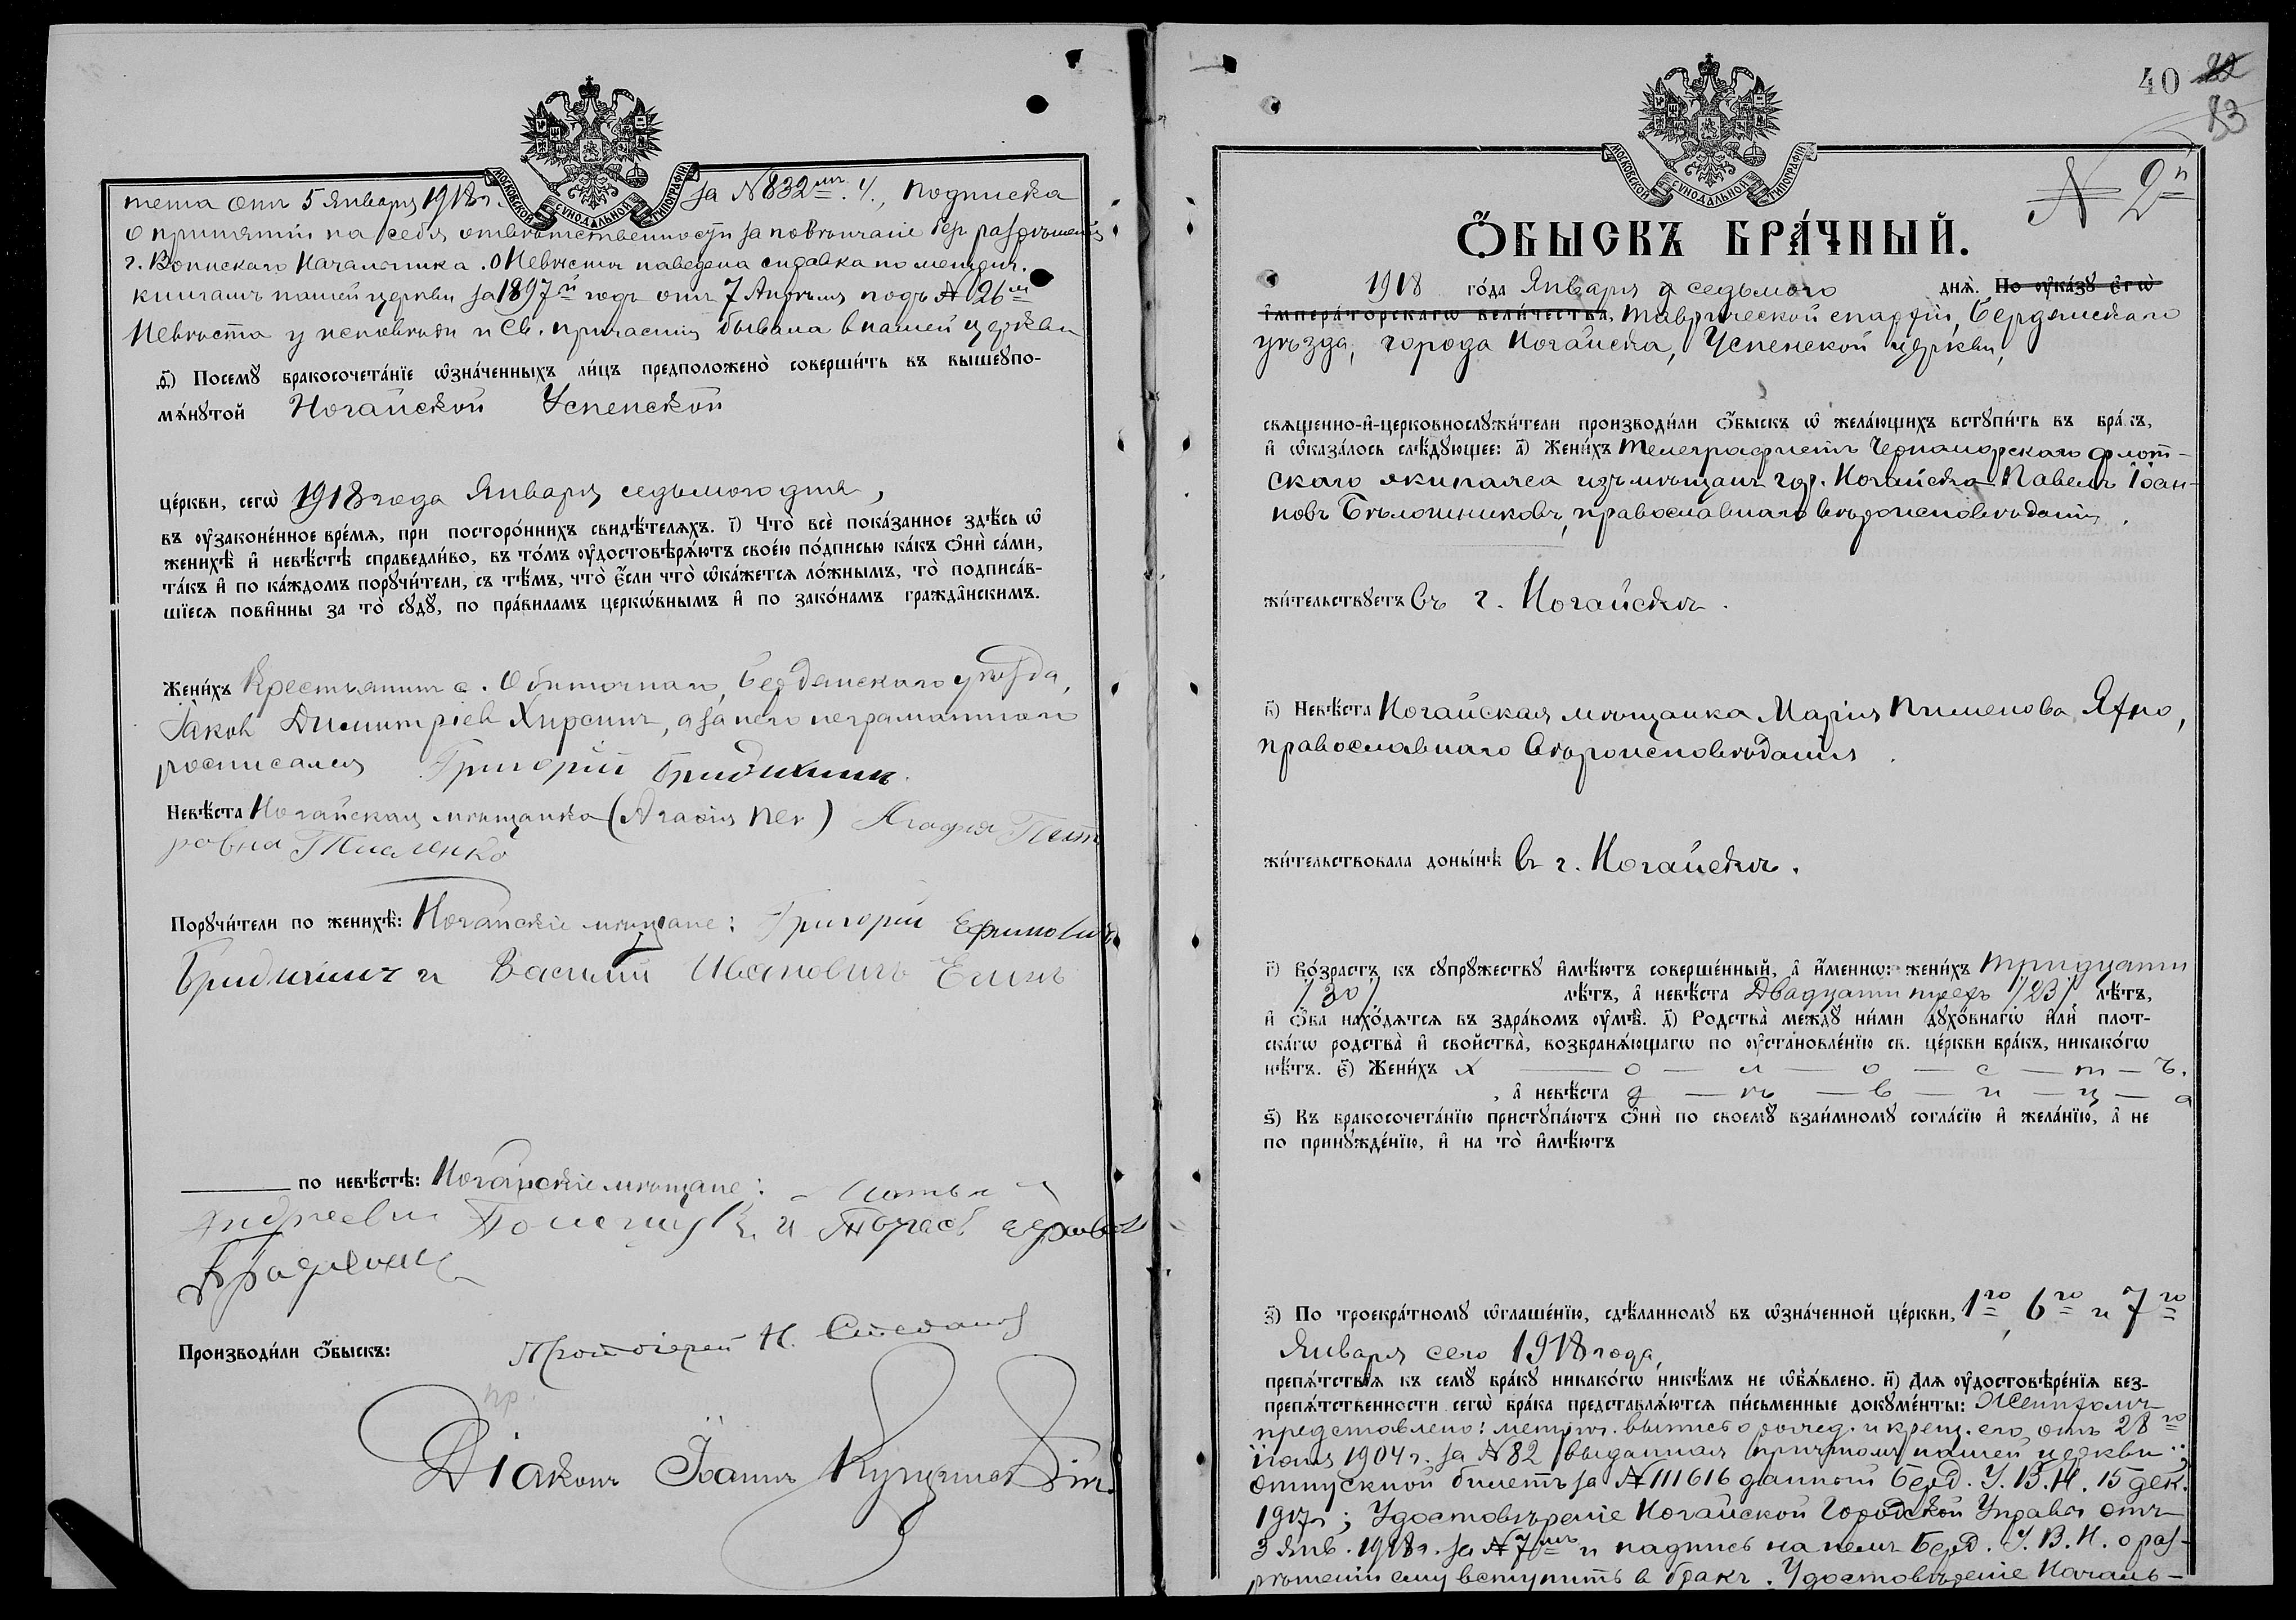 МОСКОВСКОЙ СѴНОДАЛЬНОЙ ТИПОГРАФІИ
тета отъ 5 Января 1918 г. за № 832мъ. Ч., подписка
о принятіи на себя отвѣтственности за повѣнчаніе без разрѣшенія
г. Воинскаго Начальника. О Невѣстѣ наведена справка по метрич.
книгамъ нашей церкви за 1897й годъ отъ 7 Апрѣля подъ № 26м
Невѣста у исповѣди и Св. причастія бывала в нашей церкви
д҃і) Посемꙋ̀ бракосочета́нїе ѡ҆зна́ченныхъ ли́цъ предположено̀ соверши́ть въ вышеꙋпо-
мѧ́нꙋтой Ногайской Успенской
це́ркви, сегѡ̀ 1918 года Января седьмого дня,
въ ᲂу҆зако́не́нное вре́мѧ, при посторо́ннихъ свидѣ́телѧхъ. і҃) Что̀ всѐ пока́занное здѣ́сь ѡ҆
женихѣ̀ и҆ невѣ́стѣ справедли́во, въ то́мъ ᲂу҆достовѣрѧ́ютъ свое́ю по́дписью ка́къ ѻ҆нѝ са́ми,
та́къ и҆ по ка́ждомъ порꙋчи́тели, съ тѣ́мъ, что̀ є҆́сли что̀ ѡ҆ка́жетсѧ ло́жнымъ, то̀ подписа́в-
шїесѧ пови́нны за то̀ сꙋдꙋ̀, по пра́виламъ церкѡ́внымъ и҆ по зако́намъ гражда́нскимъ.
Жени́хъ Крестьянинъ с. Обиточнаго, Бердянскаго уѣзда,
Іаков Димитріев Хирсинъ, а за него неграмотнаго
росписался Григорій Бридихинъ.
Невѣ́ста Ногайская мѣщанка (Агафія Пет) Агафия Пет
ровна Тиаленко
Порꙋчи́тели по женихѣ̀: Ногайскіе мѣщане: Григорій Ефимовичъ
Бридихинъ и Василий Ивановичъ Елинъ
по невѣ́стѣ: Ногайскіе мѣщане:
Андреевич и
Производи́ли ѻ҆́быскъ: Протоіерей Н. Стефановъ
пр.
Діаконъ Іоаннъ
40 82
83
№ 2й
МОСКОВСКОЙ СѴНОДАЛЬНОЙ ТИПОГРАФІИ
Ѻ҆́БЫСКЪ БРА́ЧНЫЙ.
1918 го́да Января седьмого днѧ̀. По ᲂу҆ка́зꙋ є҆гѡ̀
і҆мпера́торскагѡ вели́чества, Таврической епархіи, Бердянскаго
уѣзда, города Ногайска, Успенской церкви,
свѧщенно-и҆-церковнослꙋжи́тели производи́ли ѻ҆́быскъ ѡ҆ жела́ющихъ встꙋпи́ть въ бра́къ,
и҆ ѡ҆каза́лось слѣ́дꙋющее: а҃) Жени́хъ Телеграфистъ Черноморскаго флот-
скаго экипажа изъ мѣщанъ гор. Ногайска Павелъ Іоан-
новъ Бѣлошниковъ, православнаго вѣроисповѣданія.
жи́тельствꙋетъ въ г. Ногайскѣ.
в҃) Невѣ́ста Ногайская мѣщанка Марія Пименова Яхно,
православнаго вѣроисповѣданія.
жи́тельствовала доны́нѣ в г. Ногайскѣ.
г҃) Во́зрастъ къ сꙋпрꙋ́жествꙋ и҆мѣ́ютъ соверше́нный, а҆ и҆́меннѡ: жени́хъ тридцати
/30/ лѣ́тъ, а҆ невѣ́ста двадцати трехъ /23/ лѣ́тъ,
и҆ ѻ҆́ба нахо́дѧтсѧ въ здра́вомъ ᲂу҆мѣ̀. д҃) Родства̀ междꙋ̀ ни́ми дꙋхо́внагѡ и҆лѝ плот-
ска́гѡ родства̀ и҆ сво́йства̀, возбранѧ́ющагѡ по ᲂу҆становле́нїю св. це́ркви бра́къ, никако́гѡ
нѣ́тъ. є҃) Жени́хъ х — о — л — о — с — т — ъ,
а҆ невѣ́ста д — ѣ — в — и — ц — а
ѕ҃) Къ бракосочета́нїю пристꙋпа́ютъ ѻ҆нѝ по своемꙋ̀ взаи́мномꙋ согла́сїю и҆ жела́нїю, а҆ не
по принꙋжде́нїю, и҆ на то̀ и҆мѣ́ютъ
з҃) По троекра́тномꙋ ѡ҆глаше́нїю, сдѣ́ланномꙋ въ ѡ҆зна́ченной це́ркви, 1го, 6го и 7го
Января сего 1918 года,
препѧ́тствїѧ къ семꙋ̀ бра́кꙋ никако́гѡ никѣ́мъ не ѡ҆б̾ѧ́влено. и҃) Длѧ ᲂу҆достовѣре́нїѧ без-
препѧ́тственности сегѡ̀ бра́ка представлѧ́ютсѧ пи́сьменные докꙋме́нты: Женихомъ
представлено: метрич. выпись о рожд. и крещ. его отъ 28го
іюня 1904 г. за № 82 выданная причтомъ нашей церкви;
отпускной билетъ за № 111616 данный Берд. У. В. Н. 15 дек.
1917 г; Удостовѣреніе Ногайской Городской Управы отъ
3 янв. 1918 г. за № 7мъ и надпись на немъ Берд. У. В. Н. о раз-
рѣшеніи ему вступить в бракъ. Удостовѣреніе Началь-